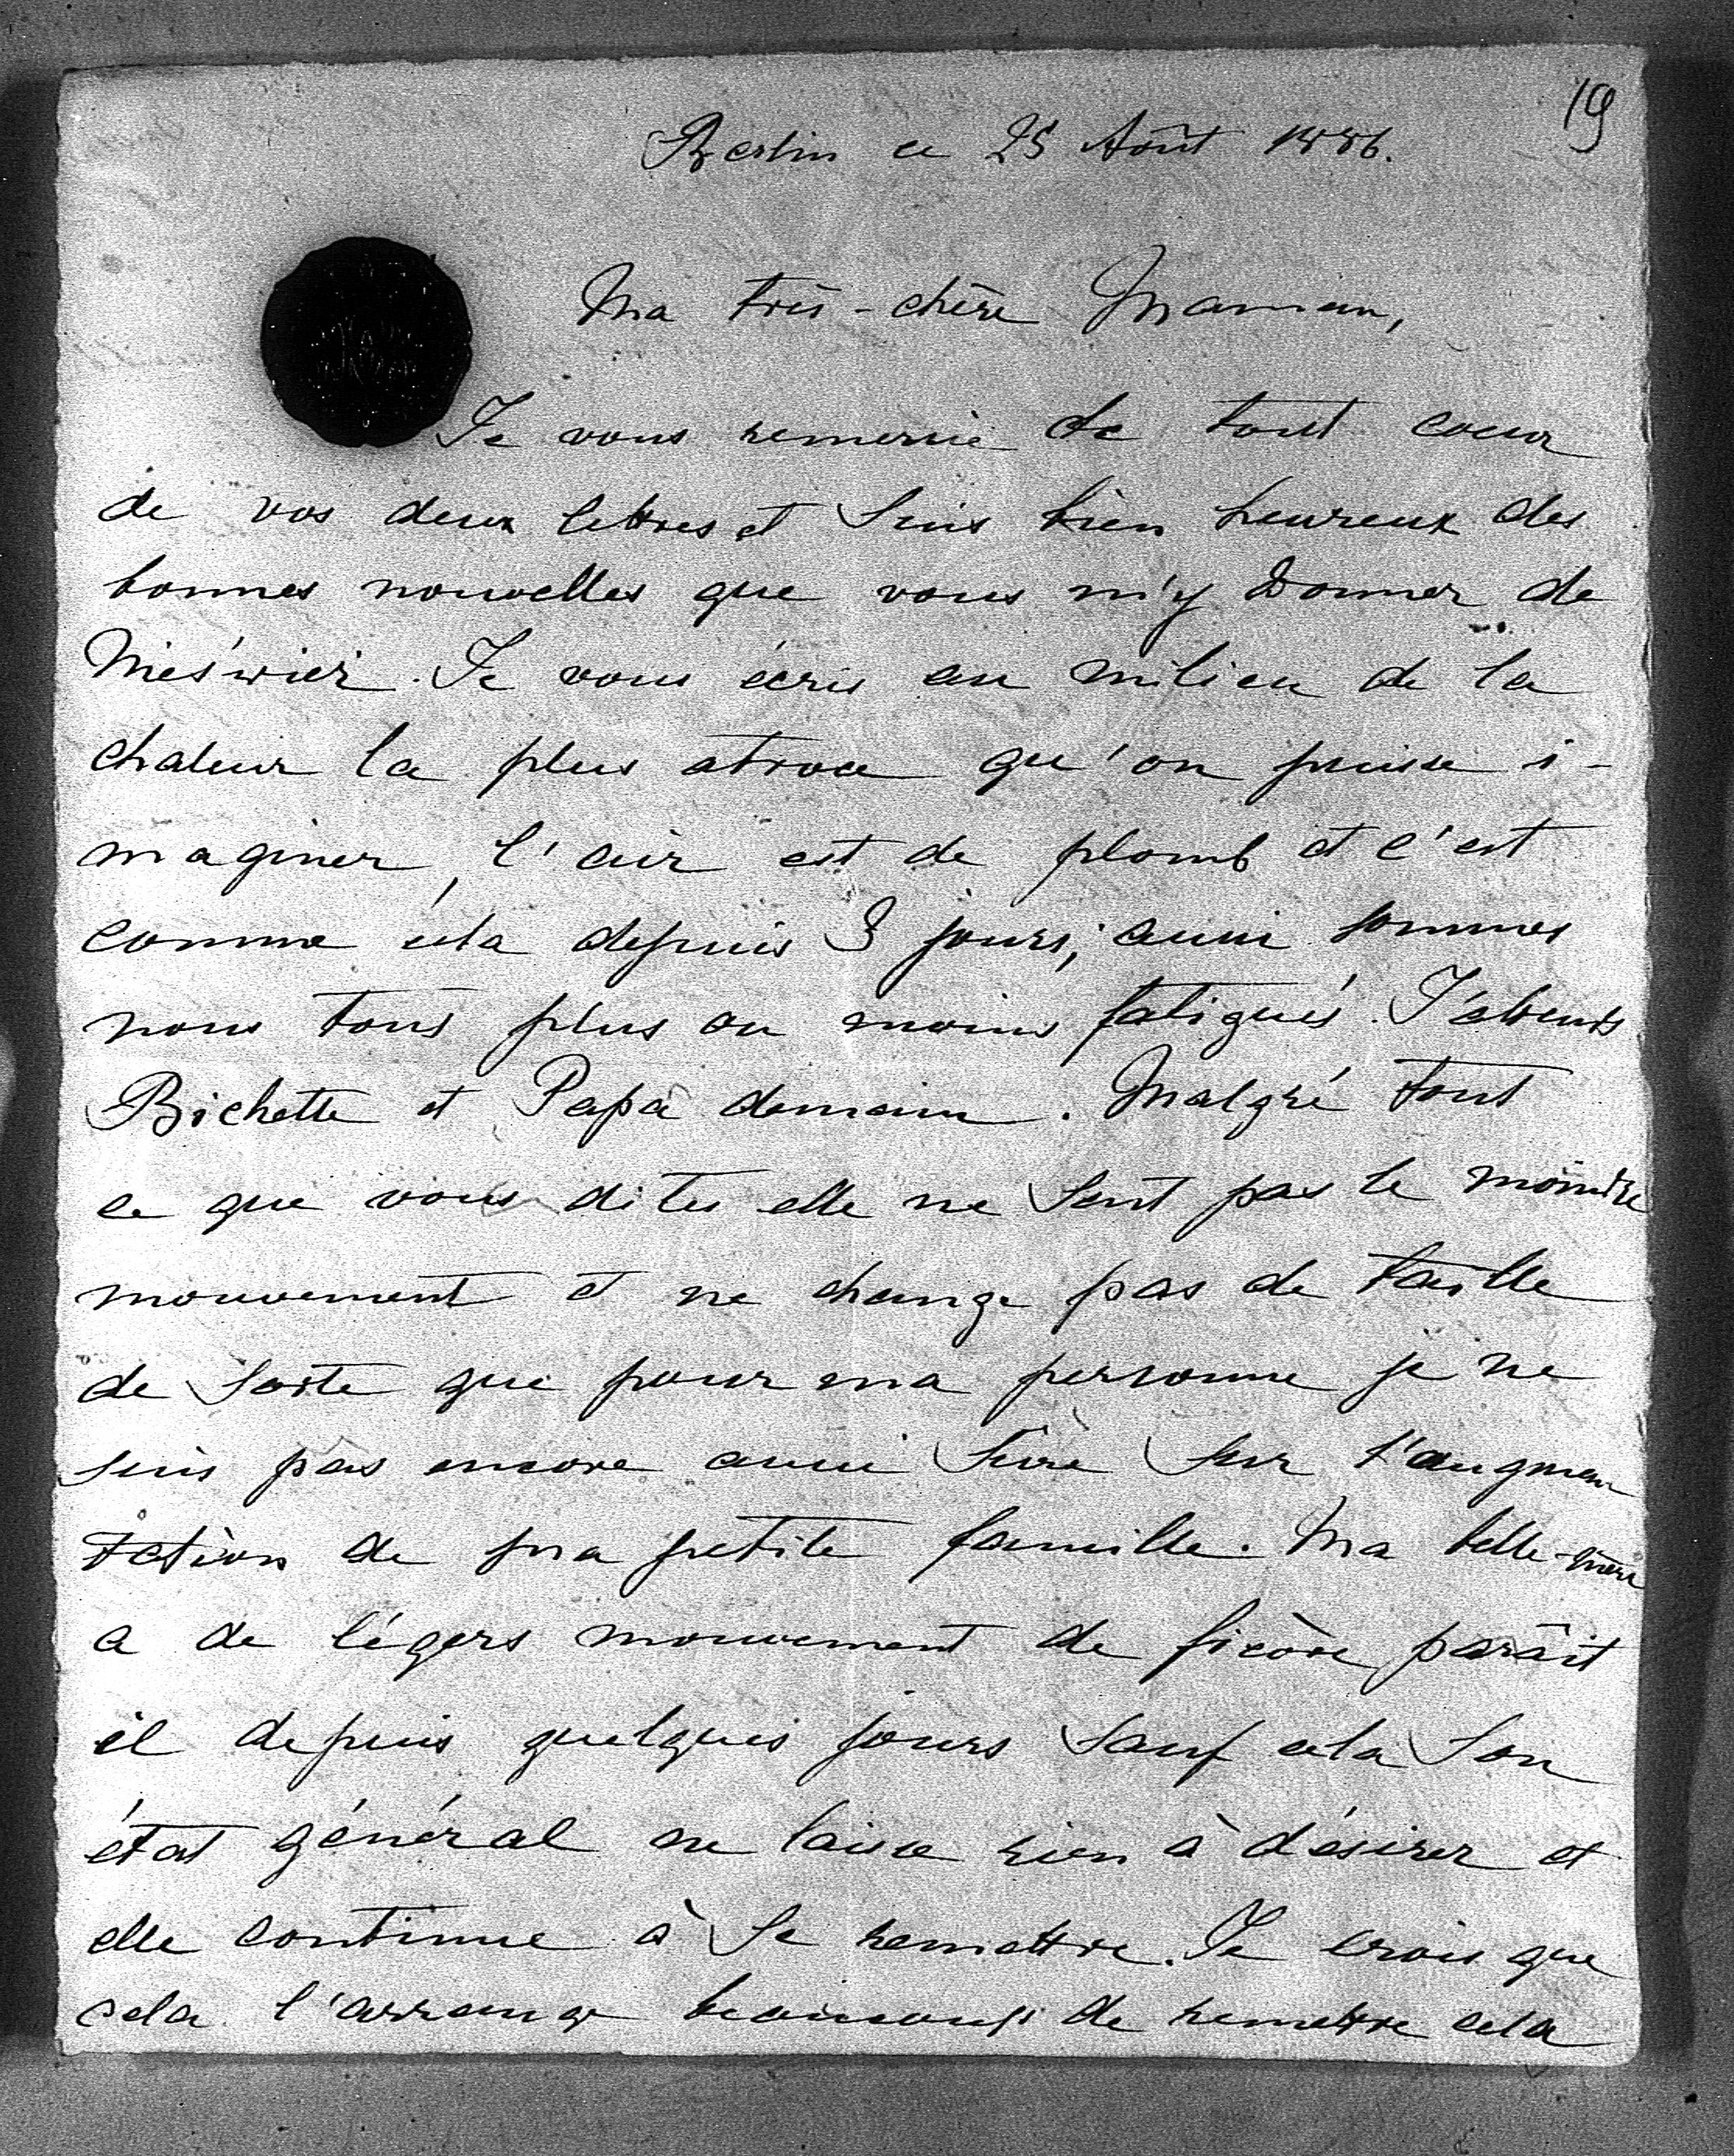 19
Berlin ce 25 Août 1886.
Ma très-chère Maman,
Je vous remercie de tout coeur
de vos deux lettres et suis bien heureux des
bonnes nouvelles que vous m'y donner de
Nieświeź. Je vous écris au milieu de la
chaleur la plus atroce qu'on puisse i-
maginer, l'air est de plomb et c'est
comme cela depuis 3 jours; aussi sommes
nous tous plus ou moins fatigués. J'attends
Bichette et Papa demain. Malgré tout
ce que vous dites elle ne sent pas le moindre
mouvement et ne change pas de taille
de sorte que pour ma personne je ne
suis pas encore aussi sûre sur l'augmen
tation de ma petite famille. Ma belle-mère
a de légers mouvement de fièvre, parâit
il depuis quelques jours sauf cela son
état général ne laisse rien à désirer et
elle continue à se remettre. Je crois que
cela l'arrange beaucoup de remettre cela